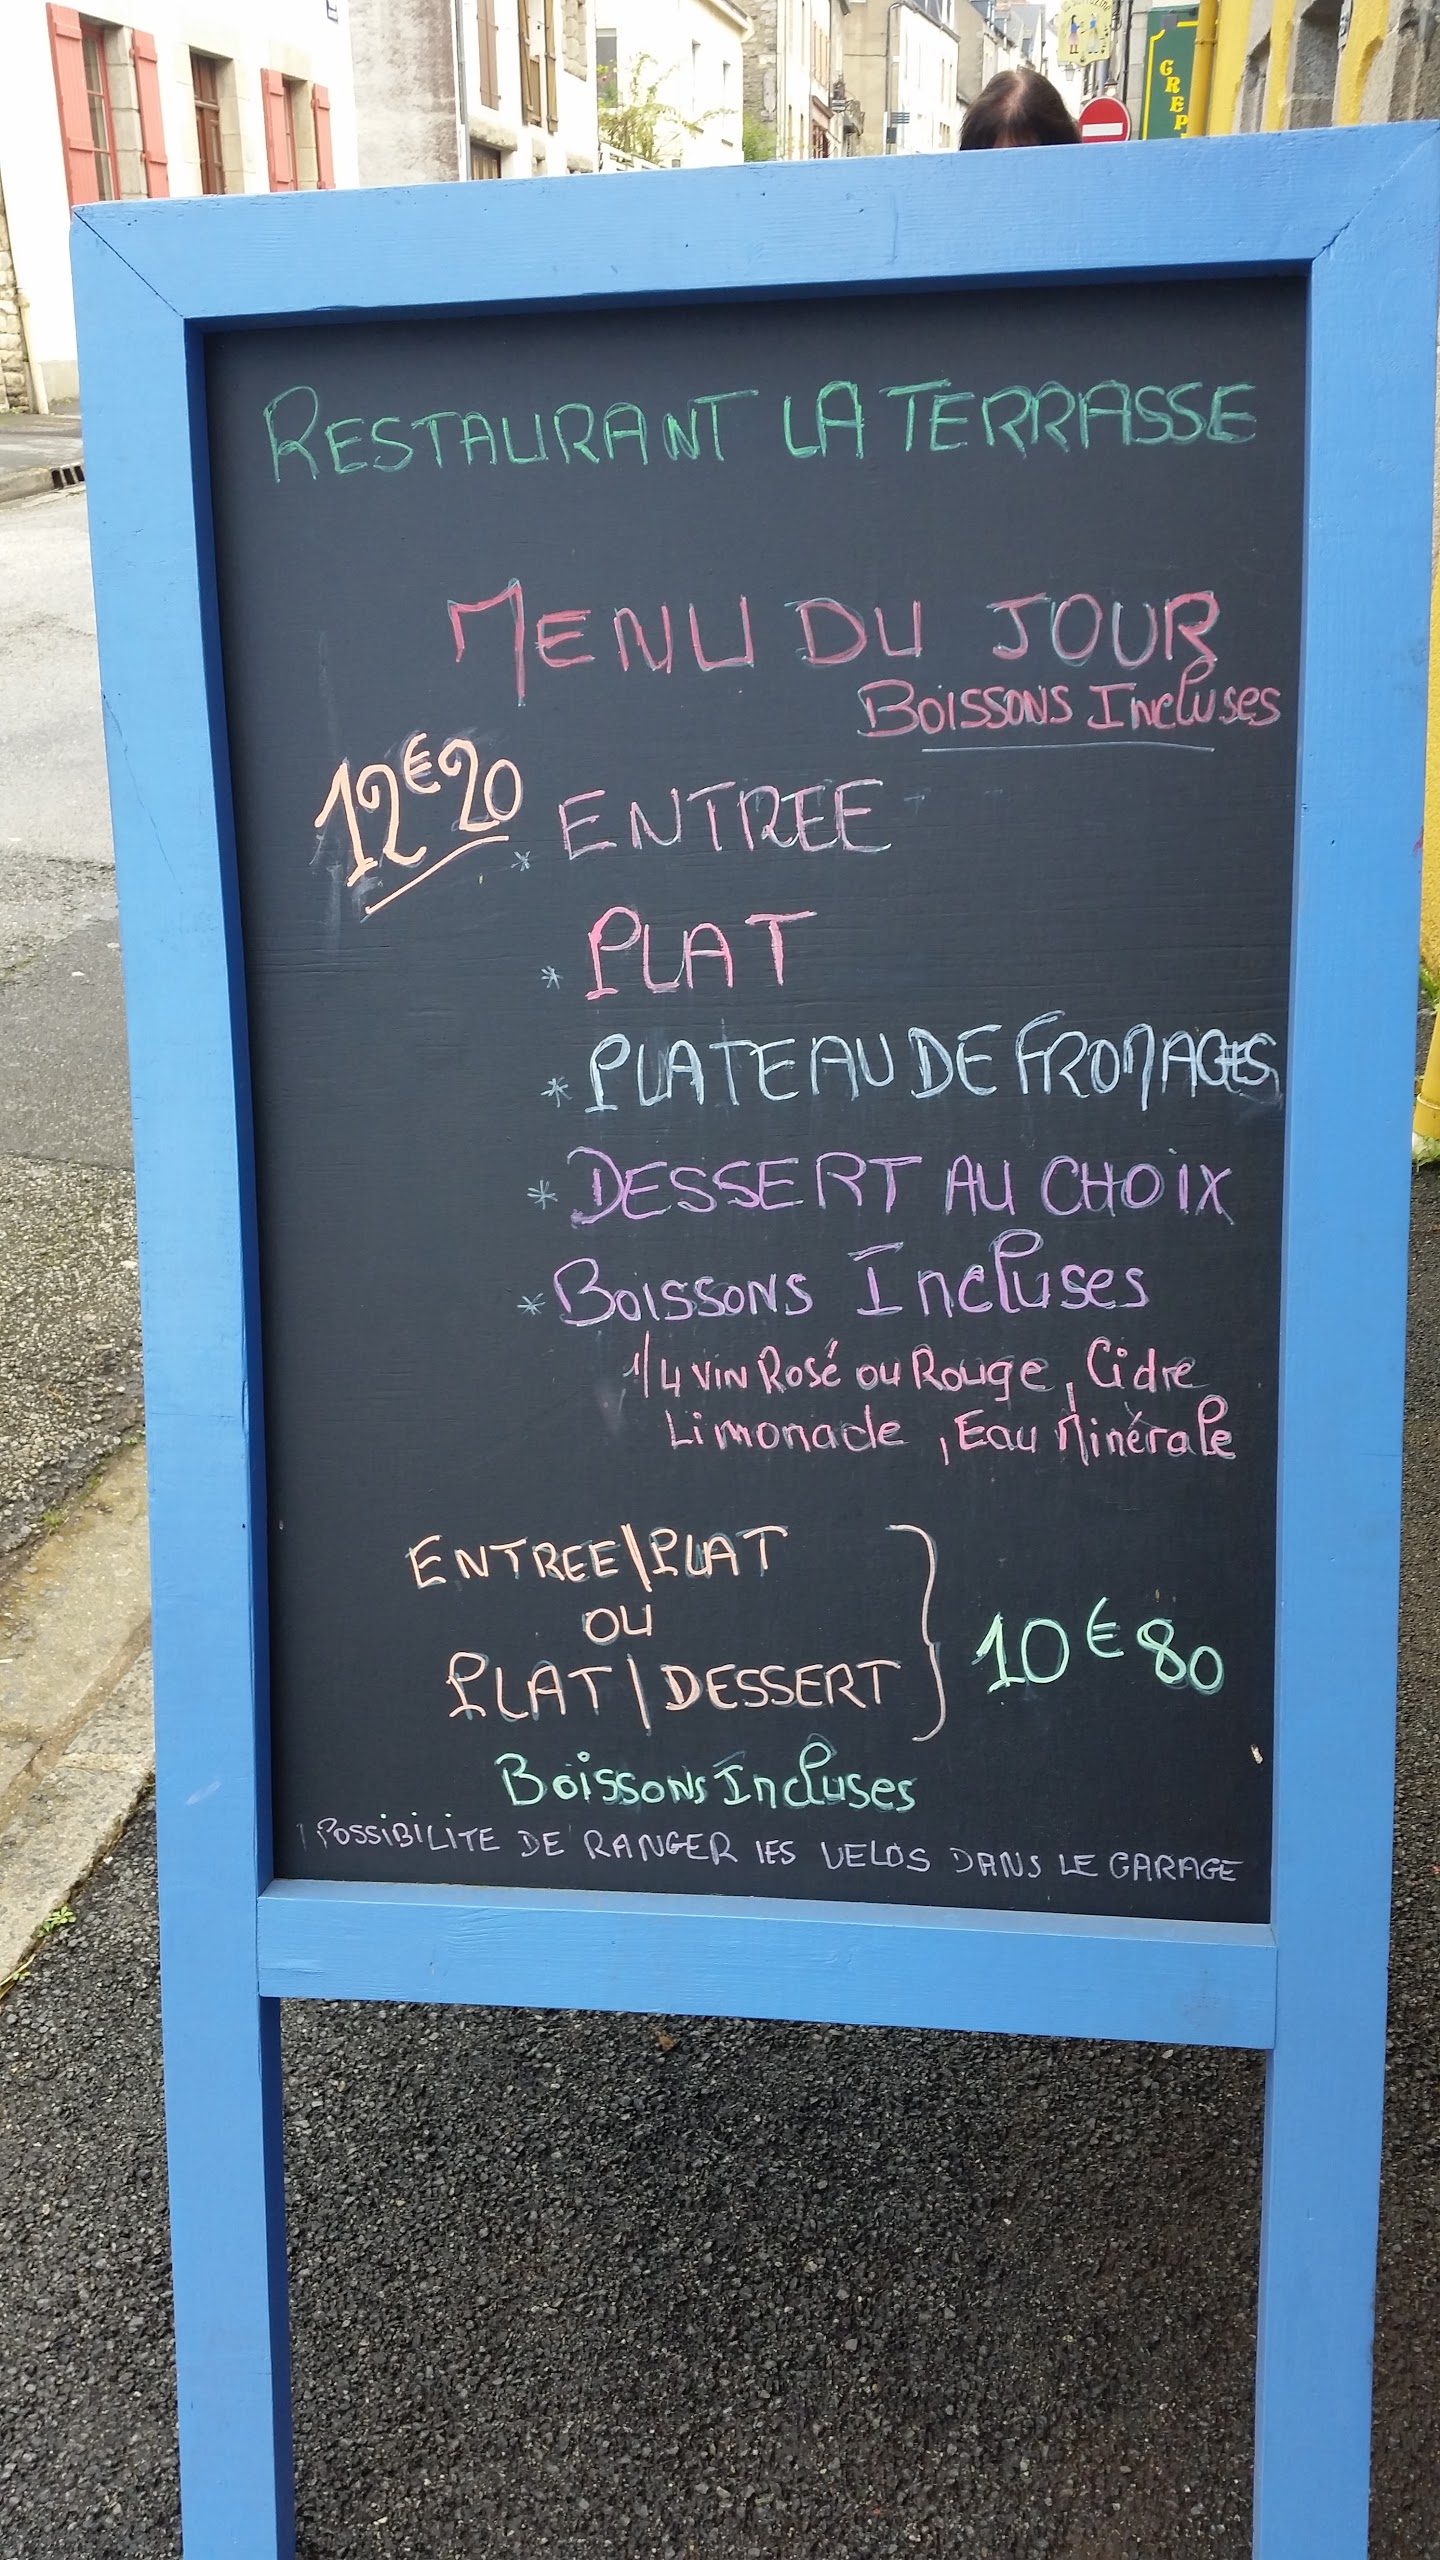 CREP
RESTAURANT LA TERRASSE
MENU DU JOUR
BOISSONS INCLUSES
12€20
* ENTREE
* PLAT
* PLATEAU DE FROMAGES
* DESSERT AU CHOIX
* BOISSONS INCLUSES
1/4 VIN Rosé ou Rouge, Cidre
Limonade, Eau Minérale
ENTREE\PLAT
OU
PLAT/DESSERT } 10€80
BOISSONS INCLUSES
POSSIBILITE DE RANGER LES VELOS DANS LE GARAGE